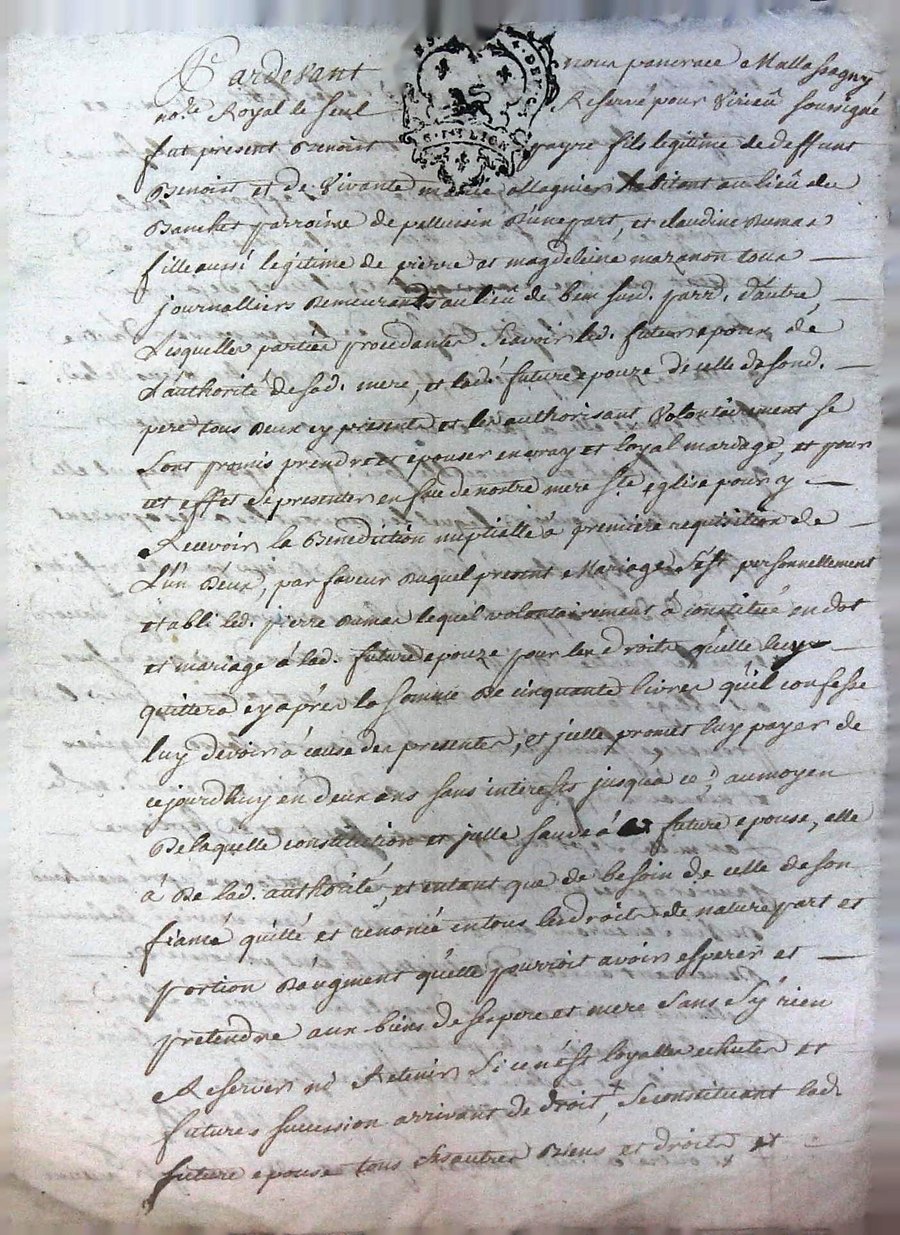 Pardevant nous pancrace Mallassagny
no.re Royal le seul Reservé pour Virieu soussigné
fut présent Benoist payre fils legitime de deffunt
Benoist et de Vivante marie allagnier habitant au lieu de
Banchet parroisse de pellussin D'une part, et claudine Dumas
fille aussi legitime de pierre et magdeleine mazanon tous
journalliers Demeurants au lieu de susd. parr. d'autre
Lesquelles parties procedantes Scavoir led. futur epoux de
L'authorité de sad. mere, et lad. future epouze de celle de sond.
pere tous Deux cy presents et les authorisant Volontairement se
sont promis prendre et epouser en vray et loyal mariage, et pour
cet effet se presenter en face de nostre mere S.te eglise pour y
Recevoir la Benediction nuptialle à premiere requisition de
L'un D'eux, par faveur Duquel present Mariage s'est personnellement
etabli led. pierre Dumas lequel volontairement à constitué en dot
et mariage à lad. future epouze pour les droits qu'elle luy
quittera cy après la somme De cinquante livres qu'il confesse
luy devoir à cause des presentes, et jcelle promet luy payer de
cejourdhuy en deux ans sans interests jusqu'a ce; au moyen
De laquelle constitution et jcelle sauve à future epouse, elle
à De lad. authorité, et entant que de besoin de celle de son
fiancé quitté et renoncé in tous les droits de nature part et
portion D'augment qu'elle pourroit avoir esperer et
pretendre aux biens de ses pere et mere sans s'y rien
Reserver ni Retenir si ce n'est loyalles echutes et
futures succession arrivant de droit, se constituant lad.
future epouse tous ses autres Biens et droits et